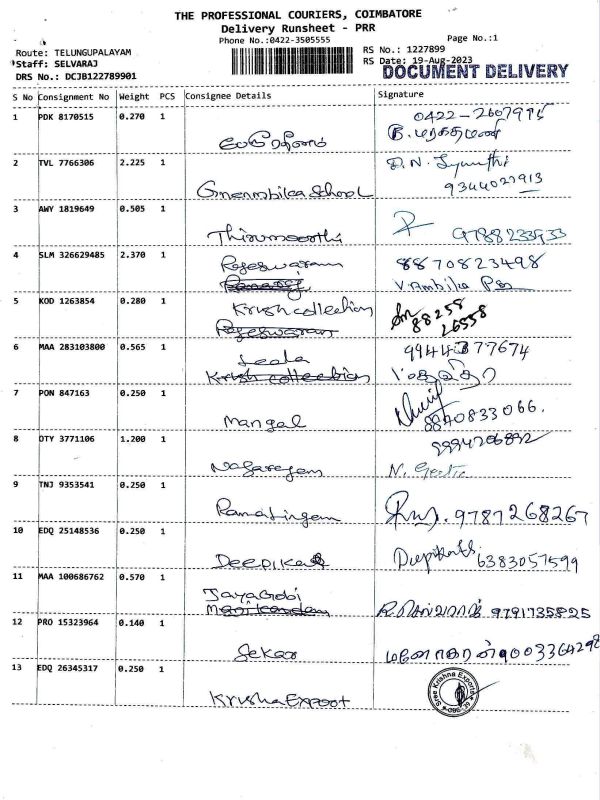 THE PROFESSIONAL COURIERS, COIMBATORE
Delivery Runsheet - PRR
Phone No.:0422-3505555
Page No.:1
Route: TELUNGUPALAYAM
RS No.: 1227899
*Staff: SELVARAJ
RS Date: 19-Aug-2023
DRS No.: DCJB122789901
DOCUMENT DELIVERY
S No Consignment No Weight PCS Consignee Details Signature
1 PDK 8170515 0.270 1
2 TVL 7766306 2.225 1 School
9344027913
3 AWY 1819649 0.505 1 Thirumoorthi 9788233933
4 SLM 326629485 2.370 1 Rajeswaram 8870823498
V. Ambika
5 KOD 1263854 0.280 1 Krish collection 88258
26558
Rajeswaram
6 MAA 283103800 0.565 1 Leela 9944377674
Krish collection
7 PON 847163 0.250 1 Mangal 8840833066.
8 OTY 3771106 1.200 1 Nagarajam N. Geetha
9 TNJ 9353541 0.250 1 Ramalingam 9787268267
10 EDQ 25148536 0.250 1 Deepika 6383057599
11 MAA 100686762 0.570 1 9791735825
12 PRO 15323964 0.140 1 Sekar மனோகரன் 9003364298
13 EDQ 26345317 0.250 1 Krisha Export
Sree Krishna Exports